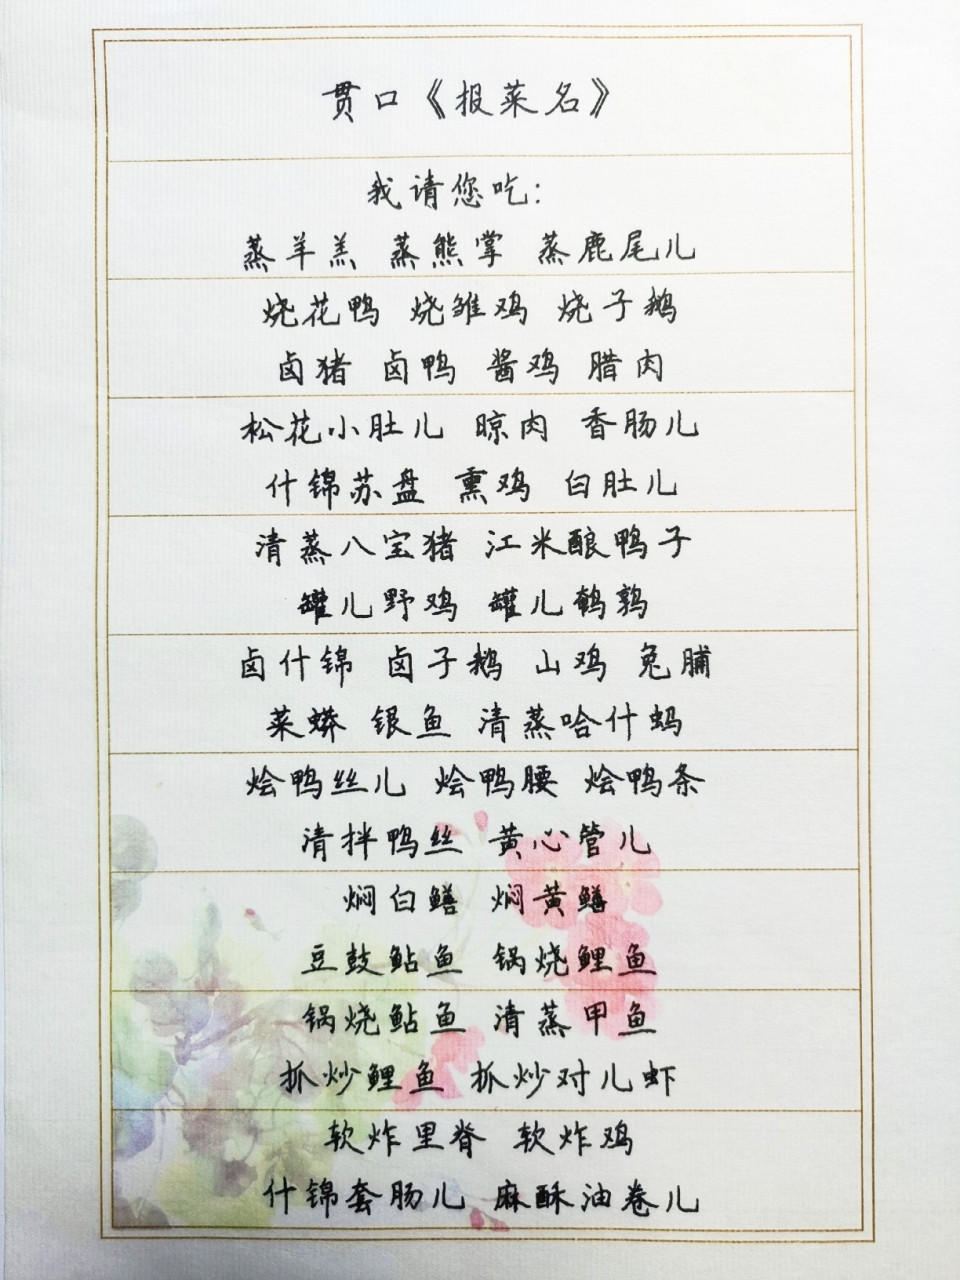 贯口《报菜名》
我请您吃：
蒸羊羔 蒸熊掌 蒸鹿尾儿
烧花鸭 烧雏鸡 烧子鹅
卤猪 卤鸭 酱鸡 腊肉
松花小肚儿 晾肉 香肠儿
什锦苏盘 熏鸡 白肚儿
清蒸八宝猪 江米酿鸭子
罐儿野鸡 罐儿鹌鹑
卤什锦 卤子鹅 山鸡 兔脯
菜蟒 银鱼 清蒸哈什蚂
烩鸭丝儿 烩鸭腰 烩鸭条
清拌鸭丝 黄心管儿
焖白鳝 焖黄鳝
豆鼓鲇鱼 锅烧鲤鱼
锅烧鲇鱼 清蒸甲鱼
抓炒鲤鱼 抓炒对儿虾
软炸里脊 软炸鸡
什锦套肠儿 麻酥油卷儿